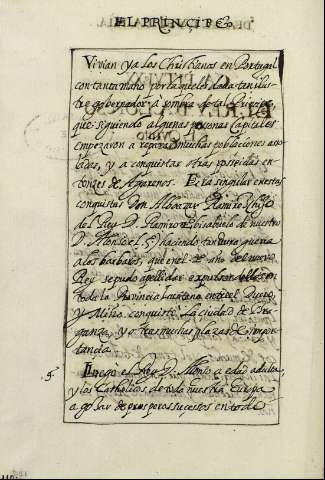 EL PRINCIPE
Vivian ya los Christianos en Portugal
con tanta
tre gobernador, a sombra de la
que siguiendo algunas personas Capitales
empezaron a reparar muchas poblaciones aso
ladas, y a conquistar otras poseidas en
tonzes de Agarenos. Era singular en estas
conquistas Don Alboazar Ramirez, hijo
del Rey D. Ramiro, bisabuelo de nuestro
D. Alonso el 5.º haciendo tan dura guerra
a los barbaros, que en el 2º año del nuevo
Rey se pudo apellidar expulsor de
to de la Provincia Lusitana entre el Duero,
y Miño. conquistó la ciudad de Bra
ganza, y otras muchas plazas de impor
tancia.
5.
Llegó el Rey D. Alonso a edad adulta,
y los Catholicos de toda nuestra Europa
a gozar de prosperos sucesos en todo